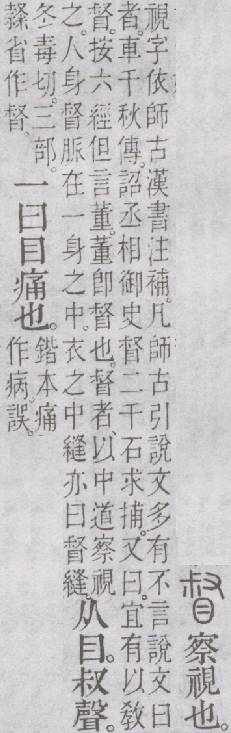 督 察視也。
視字依師古漢書注補。凡師古引說文多有不言說文曰
者。車千秋傳。詔丞相御史督二千石求捕。又曰。宜有以敎
督。按六經但言董。董卽督也。督者、以中道察視
之。人身督脈在一身之中。衣之中縫亦曰督縫。
从目。叔聲。
冬毒切。三部。
省作督。
一曰目痛也。
鍇本痛
作病。誤。